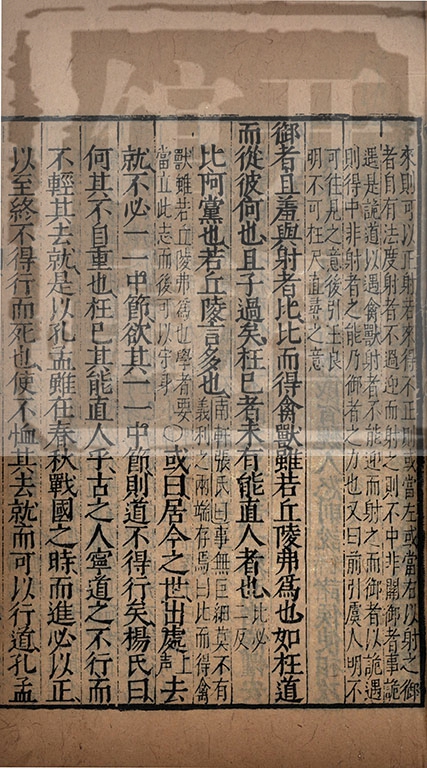 來則可以正射若來得不正則或當左或當右以射之御
者自有法度射者不過迎而射之則不中非關御者事詭
遇是詭道以遇禽獸射者不能迎而射之而御者以詭遇
則得中非射者之能乃御者之力也又曰前引虞人明不
可往見之意後引王良
明不可枉尺直尋之意
御者且羞與射者比比而得禽獸雖若丘陵弗爲也如枉道
而從彼何也且子過矣枉巳者未有能直人者也比必二反
比阿黨也若丘陵言多也南軒張氏曰事無巨細莫不有義利之兩端存焉曰比而得禽
獸雖若丘陵弗爲也學者要當立此志而後可以守身○或曰居今之世出處上聲去
就不必一一中節欲其一一中節則道不得行矣楊氏曰
何其不自重也枉巳其能直人乎古之人寧道之不行而
不輕其去就是以孔孟雖在春秋戰國之時而進必以正
以至終不得行而死也使不恤其去就而可以行道孔孟